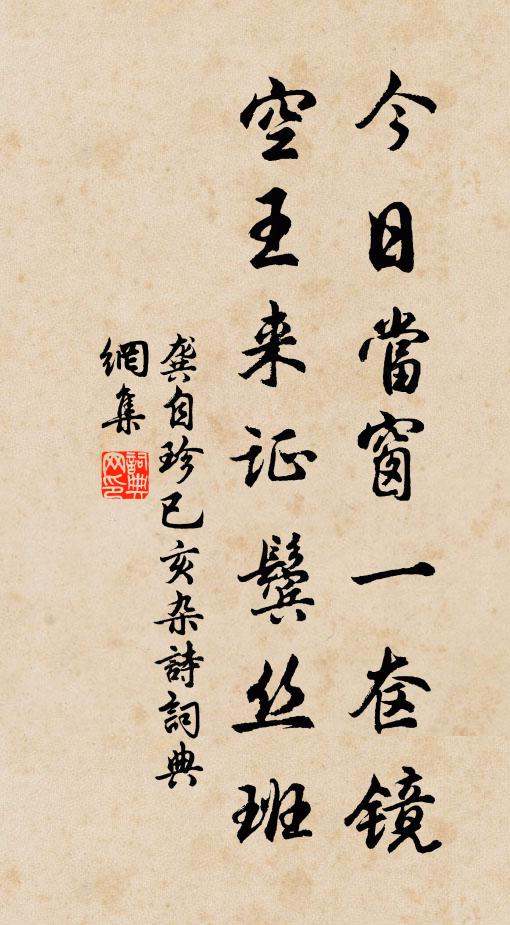 今日當窗一奁镜
空王来证鬓丝班
龚自珍己亥杂詩詞典
網集
詞典
网印